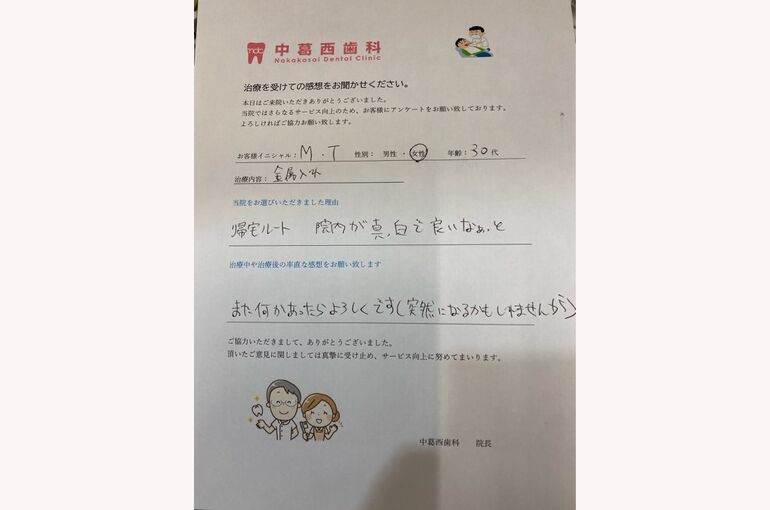 ndc
中葛西歯科
Nakakasai Dental Clinic
治療を受けての感想をお聞かせください。
本日はご来院いただきありがとうございました。
当院ではさらなるサービス向上のため、お客様にアンケートをお願い致しております。
よろしければご協力お願い致します。
お客様イニシャル： M.T 性別： 男性 ・ 女性 年齢：30代
治療内容： 金属入れ
当院をお選びいただきました理由
帰宅ルート 院内が真っ白で良いなぁ、と
治療中や治療後の率直な感想をお願い致します
また何かあったらよろしくです(突然になるかもしれませんが)
ご協力いただきまして、ありがとうございました。
頂いたご意見に関しましては真摯に受け止め、サービス向上に努めてまいります。
中葛西歯科 院長